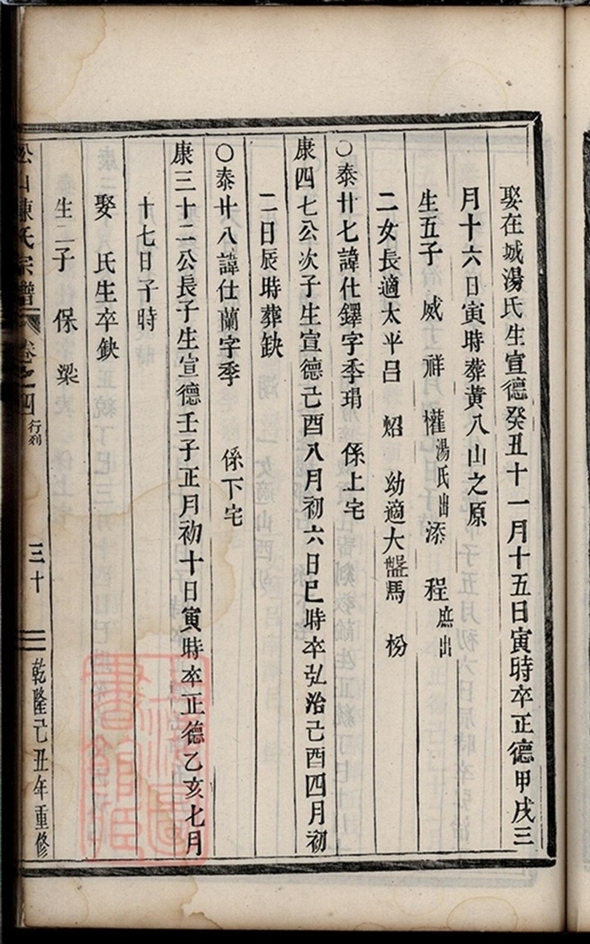 娶在城湯氏生宣德癸丑十一月十五日寅時卒正德甲戌三
月十六日寅時葬黃八山之原
生五子 威 祥 權湯氏出 添 程庶出
二女長適太平呂 炤 幼適大盤馬 枌
○泰廿七諱仕鐸字季琄 係上宅
康四七公次子生宣德己酉八月初六日巳時卒弘治己酉四月初
二日辰時葬缺
○泰廿八諱仕蘭字季 係下宅
康三十二公長子生宣德壬子正月初十日寅時卒正德乙亥七月
十七日子時
娶 氏生卒缺
生二子 保 梁
松山陳氏宗譜 卷之四 行列 三十 乾隆己丑年重修